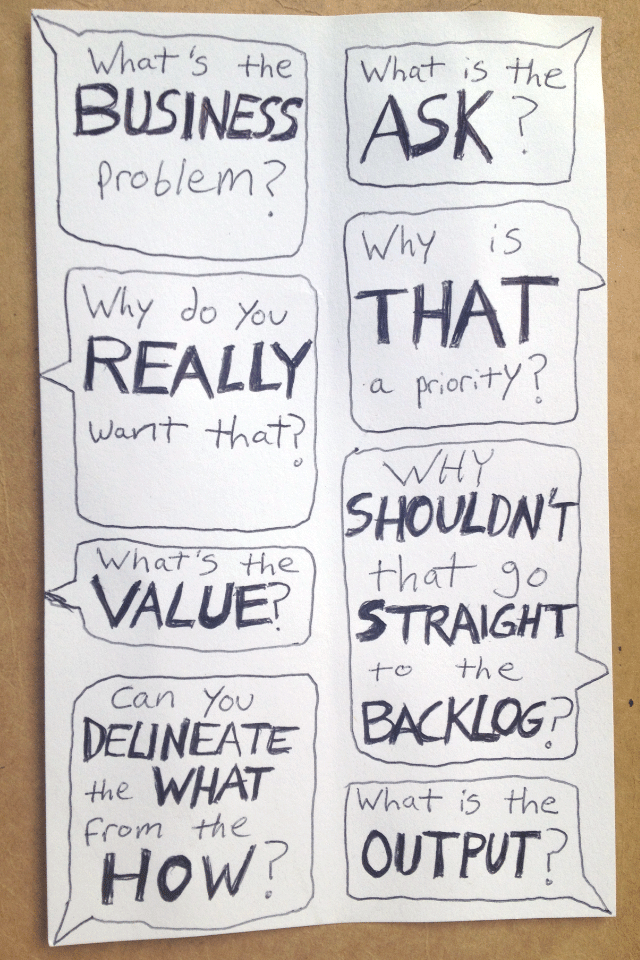 What's the
BUSINESS
problem?
Why do you
REALLY
want that?
What's the
VALUE?
Can You
DELINEATE
the WHAT
from the
HOW?
What is the
ASK?
Why is
THAT
a priority?
WHY
SHOULDN'T
that go
STRAIGHT
to the
BACKLOG?
What is the
OUTPUT?